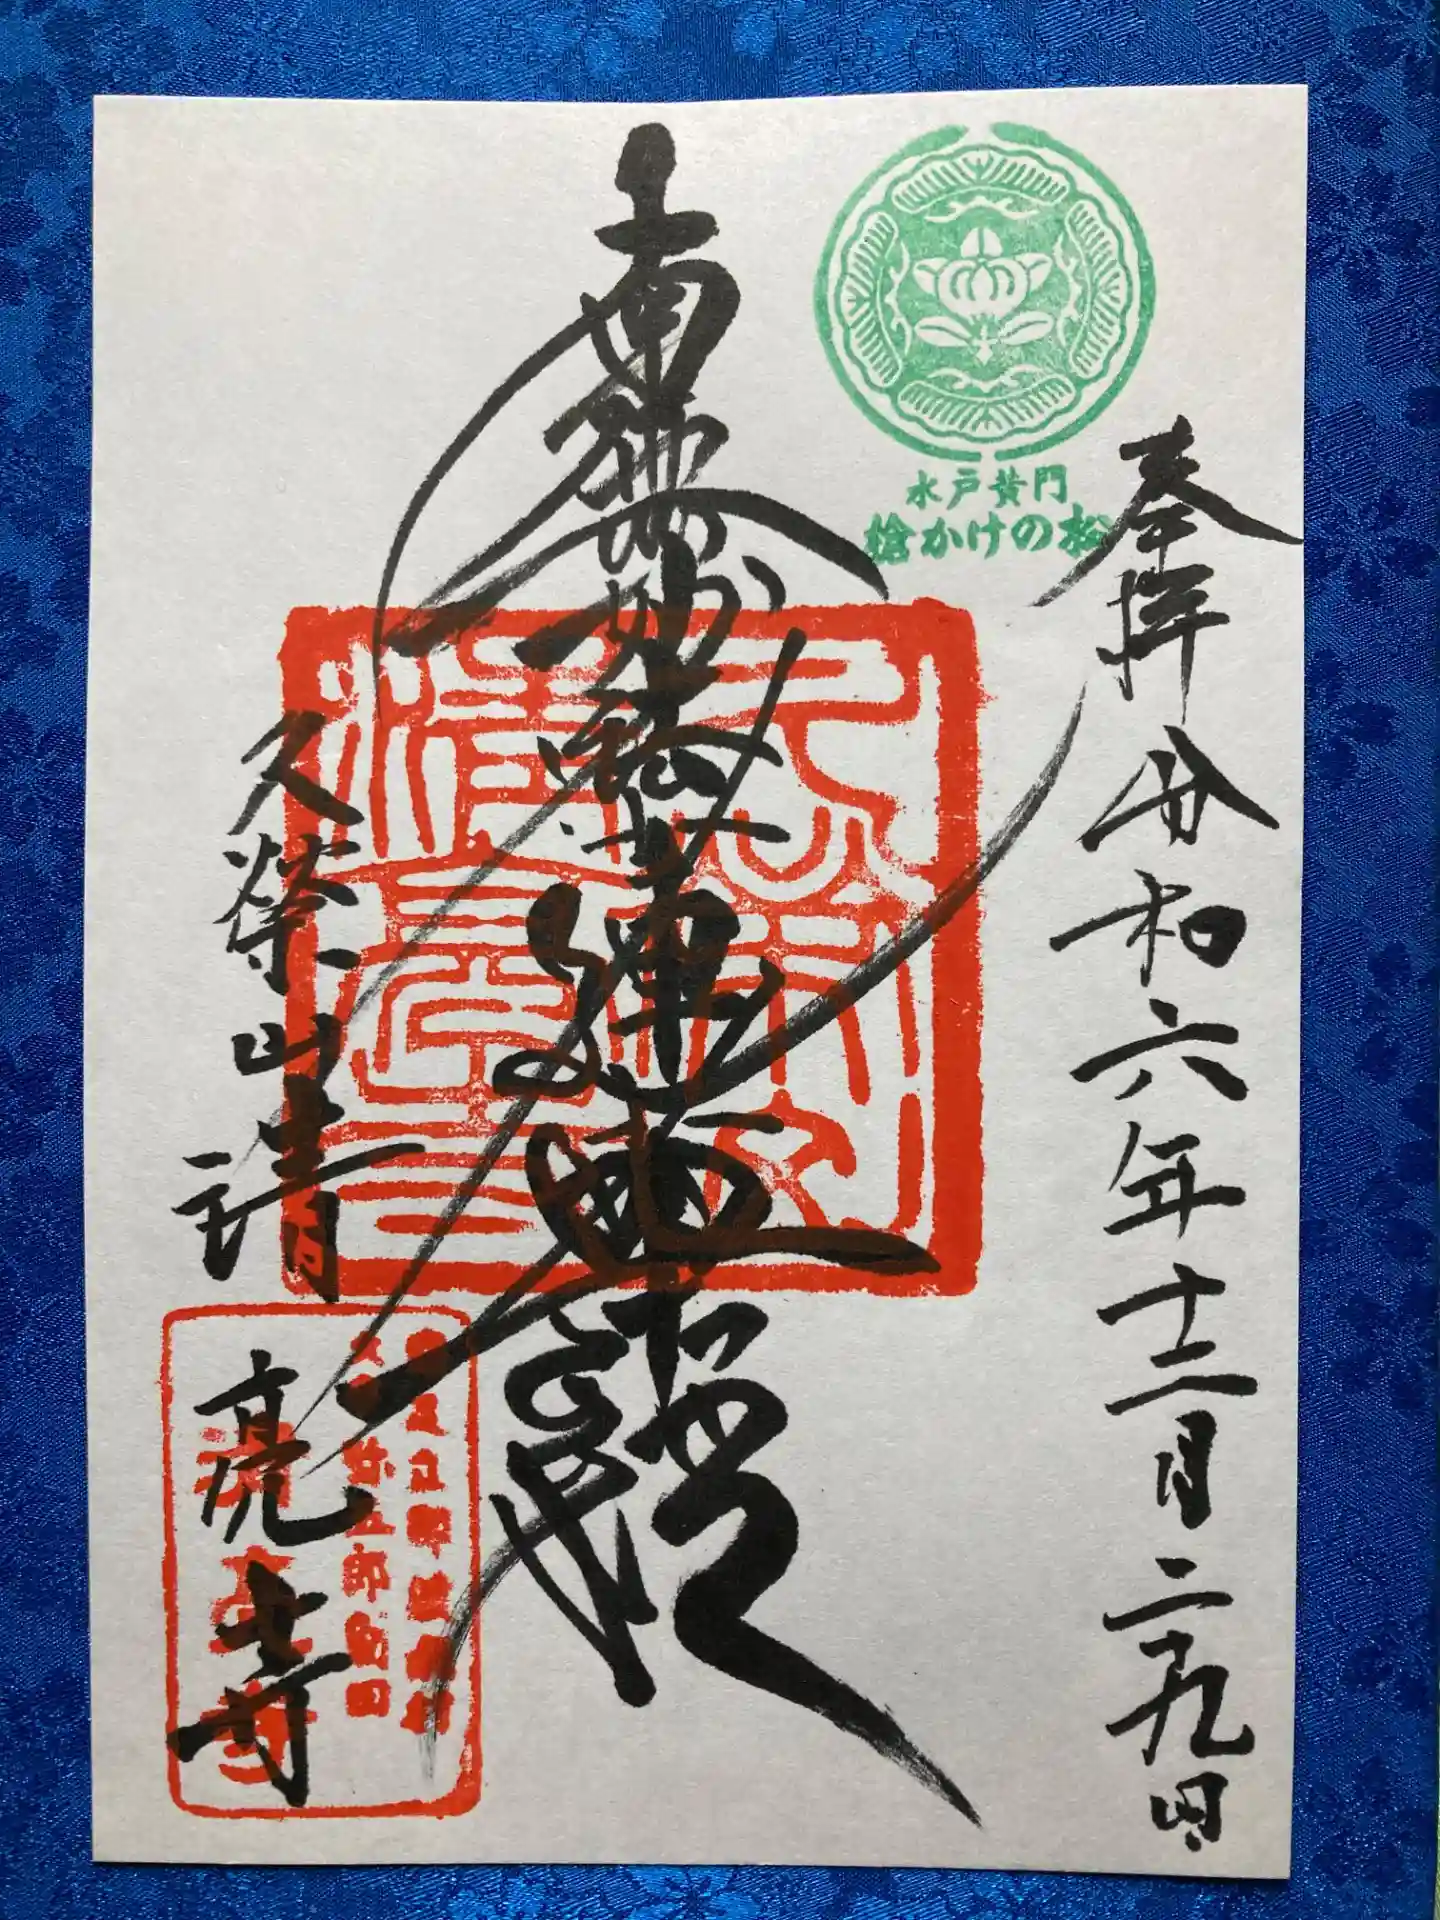 水戸黄門
槍かけの松
奉拝 令和六年十二月二九日
南無妙法蓮華経
久榮山 清亮寺